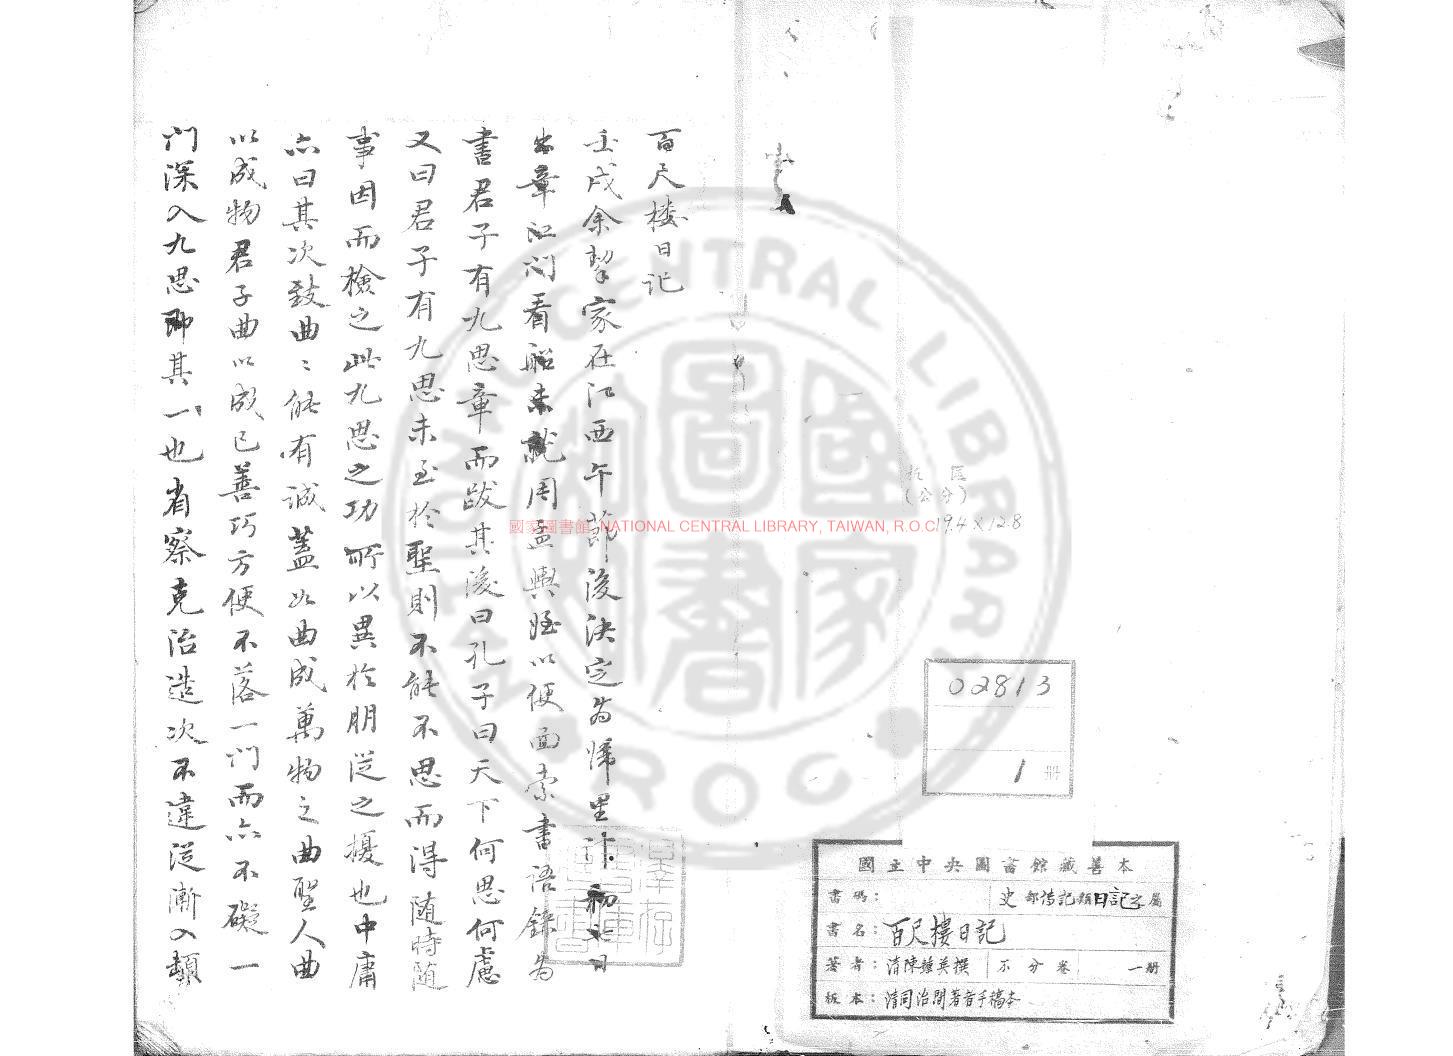 百尺樓日記
壬戌余挈家在江西午節後決定為歸里計初六日
出章江門看船未就用孟輿姪以便面索書語錄為
書君子有九思章而跋其後曰孔子曰天下何思何慮
又曰君子有九思未至於聖則不能不思而得随時随
事因而檢之此九思之功所以異於朋從之擾也中庸
亦曰其次致曲〻能有誠蓋以曲成萬物之曲聖人曲
以成物君子曲以成己善巧方便不落一门而亦不礙一
门深入九思即其一也省察克治造次不違從漸入頓
(公分)
19.4 × 12.8
02813
1 冊
國立中央圖書館藏善本
書碼： 史部傳記類日記之屬
書名：百尺樓日記
著者：清陳鍾英撰 不分卷 一冊
板本：清同治間著者手稿本
國家圖書館, NATIONAL CENTRAL LIBRARY, TAIWAN, R.O.C.
國家圖書館
NATIONAL CENTRAL LIBRARY
ROC